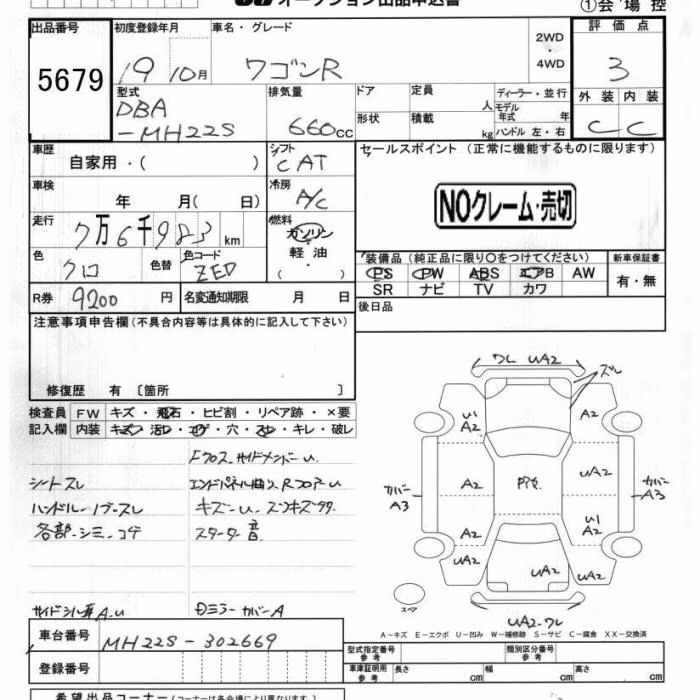 オークション出品申込書
①会場控
出品番号 5679
初度登録年月 19 10月
車名・グレード ワゴンR
2WD・4WD
評価点 3
型式 DBA-MH22S
排気量 660cc
ドア
定員 人
ディーラー・並行
形状
積載 kg
モデル年式 年
ハンドル 左・右
外装 内装
C C
車歴 自家用・( )
シフト CAT
セールスポイント (正常に機能するものに限ります)
車検 年 月( 日)
冷房 A/C
NOクレーム・売切
走行 7万6千983km
燃料 ガソリン・軽油・( )
色 クロ
色替
色コード ZED
装備品 (純正品に限り○をつけてください)
新車保証書
PS PW ABS エアB AW
SR ナビ TV カワ
有・無
R券 9200円
名変通知期限 月 日
後日品
注意事項申告欄(不具合内容等は具体的に記入して下さい)
修復歴 有 〔箇所 〕
検査員記入欄
FW キズ・飛石・ヒビ割・リペア跡・×要
内装 キズ・汚レ・コゲ・穴・スレ・キレ・破レ
Fクロス.サイドメンバーu.
シートスレ
エンドパネル曲リ.RフロアーU
ハンドル-ノブ-スレ
キズ-u.
各部-シミ-コゲ
スターター音
A-u
ミラーカバーA
ワレ UA2
ズレ
U1
A2
A2
A2
UA2
カバー
A3
カバー
A3
A2
U1
A2
UA2
UA2
UA2
スペア
UA2-ワレ
A-キズ E-エクボ U-凹み W-補修跡 S-サビ C-腐食 XX-交換済
車台番号 MH22S-302669
登録番号
型式指定番号 参考
類別区分番号 参考
車庫証明用 参考 長さ cm 幅 cm 高さ cm
希望出品コーナー(コーナーは各会場により異なります)